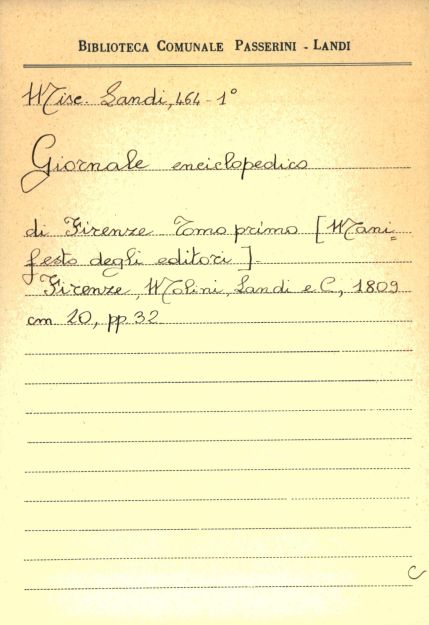 BIBLIOTECA COMUNALE PASSERINI - LANDI
Misc. Landi, 464 - 1°
Giornale enciclopedico
di Firenze Tomo primo [Mani=
festo degli editori].
Firenze, Molini, Landi e C., 1809
cm 20, pp. 32
C